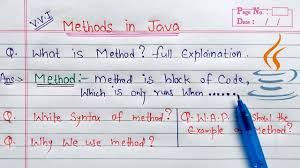 V.V.I
Methods in Java
Page No.:
Date: / /
Q. What is Method? full Explaination.
Ans:- Method:- Method is block of Code,
Which is only runs when ......
Q. Write Syntax of method?
Q. W.A.P Show the
Example of Method?
Q. Why We use method?